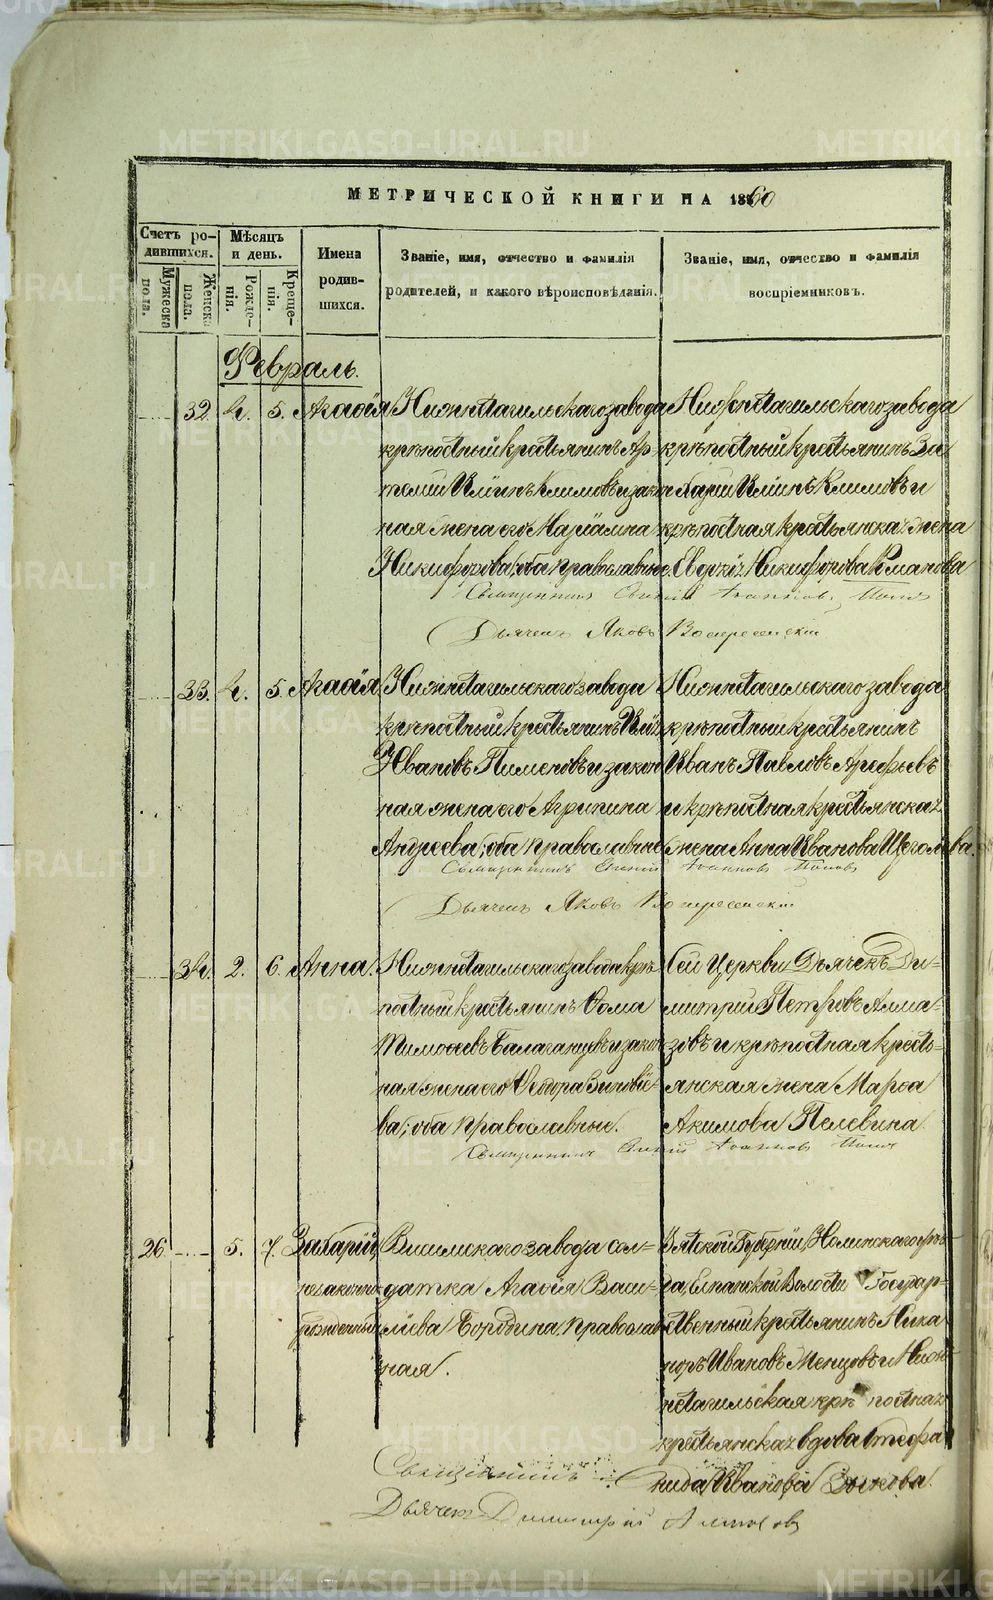 МЕТРИЧЕСКОЙ КНИГИ НА 1860
Счетъ родившихся.
Мѣсяцъ и день.
Имена родившихся.
Званіе, имя, отчество и фамилія родителей, и какого вѣроисповѣданія.
Званіе, имя, отчество и фамилія воспріемниковъ.
Мужеска пола.
Женска пола.
Рожденія.
Крещенія.
Февраль.
32. 4. 5. Агаѳія
Нижнетагильскаго завода
крѣпостный крестьянинъ Ар-
темій Ильинъ Климовъ и закон
ная жена его Маріамна
Никифорова, оба православные.
Нижнетагильскаго завода
крѣпостный крестьянинъ За
харій Ильинъ Климовъ и
крѣпостная крестьянская жена
Евдокія Никифорова
Священникъ Іоанновъ Поповъ
Дьячекъ Яковъ Воскресенскій
33. 4. 5. Агаѳія
Нижнетагильскаго завода
крѣпостный крестьянинъ Илія
Ивановъ Пименовъ и закон
ная жена его Агрипина
Андреева, оба православные
Нижнетагильскаго завода
крѣпостный крестьянинъ
Иванъ Павловъ Арефьевъ
и крѣпостная крестьянская
жена Анна Иванова Щеголева.
Священникъ Іоанновъ Поповъ
Дьячекъ Яковъ Воскресенскій
34. 2. 6. Анна.
Нижнетагильскаго завода крѣ-
постный крестьянинъ Ѳома
Тимоѳеевъ Балаганцевъ и закон
ная жена его Ѳедора Зиновіе-
ва; оба православные.
Сей Церкви Дьячекъ Ди-
митрій Петровъ Алма-
зовъ и крѣпостная кресть-
янская жена Марѳа
Акимова Пелевина.
Священникъ Іоанновъ Поповъ
26. 5. 7. Захарій,
незаконно-
рожденный
Висимскаго завода сол-
датка Агаѳія Васи-
ліева Бородина, православ
ная.
Вятской Губерніи, Нолинскаго уѣз-
да, Волости Государ-
ственный крестьянинъ Ника
норъ Ивановъ Менцовъ и Ниж-
нетагильская крѣпостная
крестьянская вдова Стефа
нида Иванова Зыкова.
Священникъ
Дьячекъ Димитрій Алмазовъ